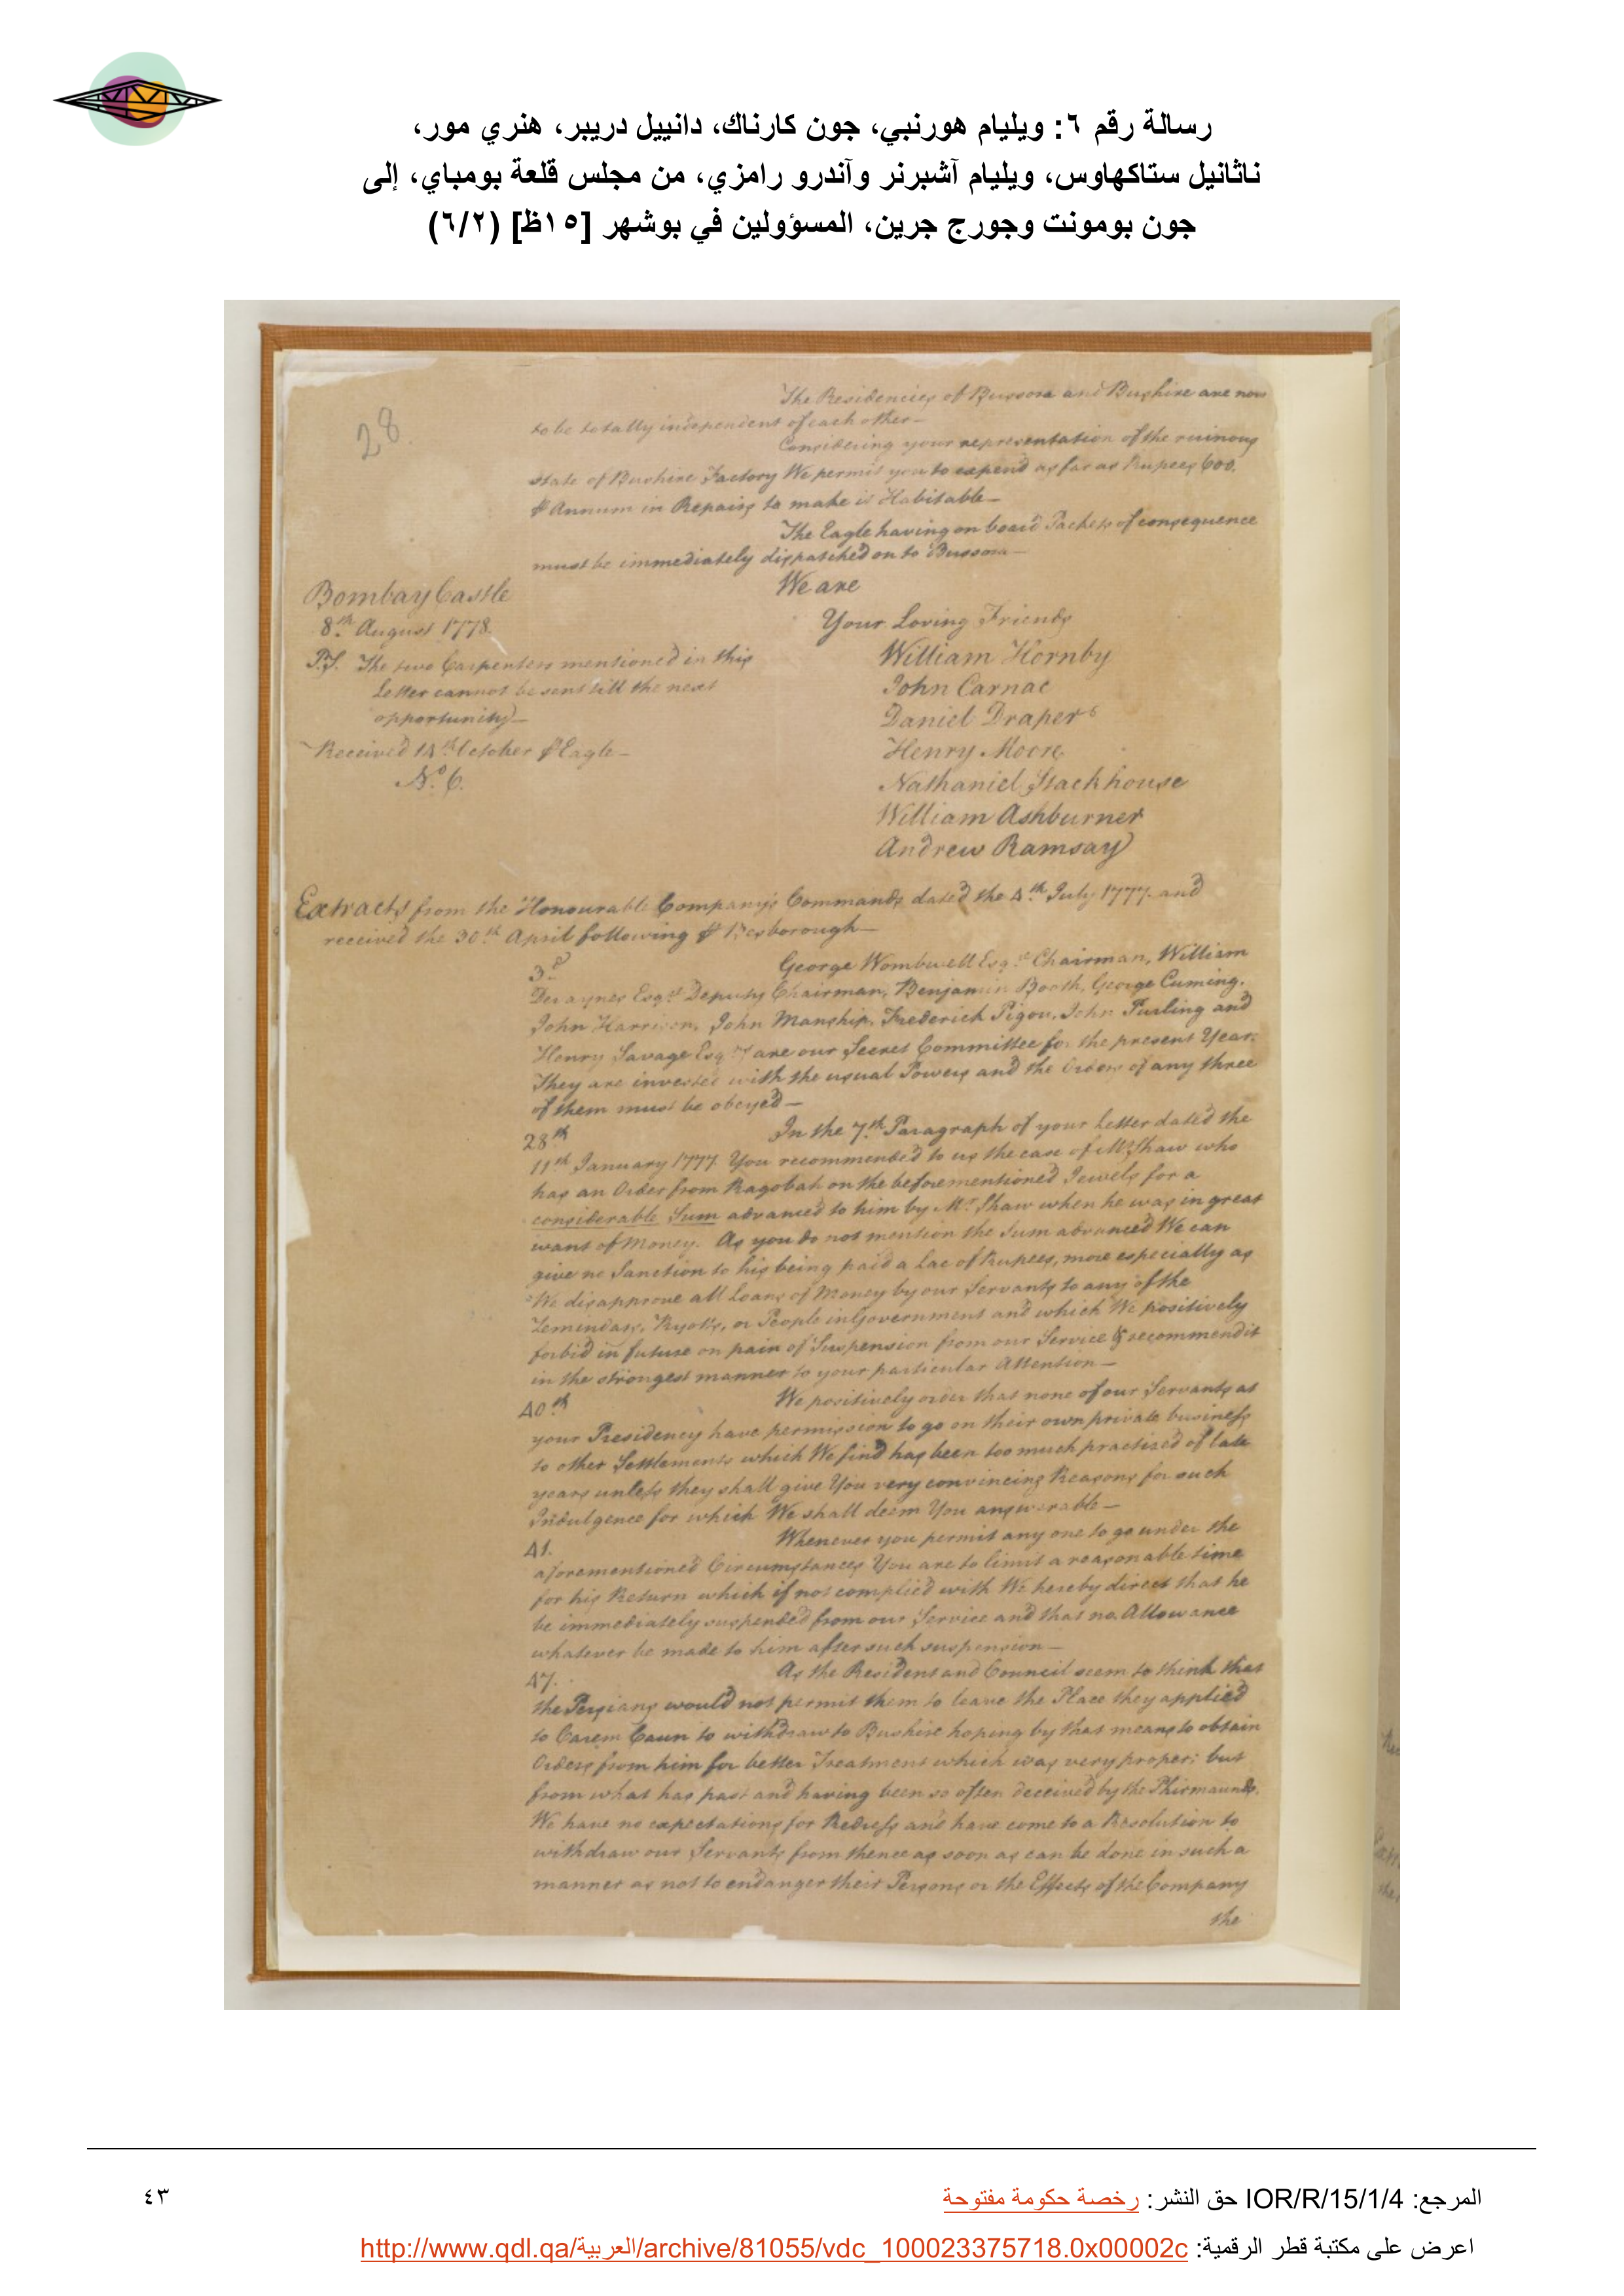 رسالة رقم ٦: ويليام هورنبي، جون كارناك، دانييل دريبر، هنري مور،
ناثانيل ستاكهاوس، ويليام آشبرنر وآندرو رامزي، من مجلس قلعة بومباي، إلى
جون بومونت وجورج جرين، المسؤولين في بوشهر [١٥ظ] (٦/٢)
28.
The Residencies of Bussora and Bushire are now
to be totally independent of each other—
Considering your representation of the ruinous
state of Bushire Factory We permit you to expend as far as Rupees 600.
⅌ Annum in Repairs to make it Habitable—
The Eagle having on board Packets of consequence
must be immediately dispatched on to Bussora—
We are
Bombay Castle
Your Loving Friends
8th August 1778.
William Hornby
P.S. The two Carpenters mentioned in this
John Carnac
Letter cannot be sent till the next
Daniel Draper
opportunity—
Henry Moore
Received 14th October ⅌ Eagle—
Nathaniel Stackhouse
No. 6.
William Ashburner
Andrew Ramsay
Extracts from the Honourable Company's Commands dated the 4th July 1777. and
received the 30th April following ⅌ Besborough—
3d George Wombwell Esqr. Chairman, William
Devaynes Esqr. Deputy Chairman, Benjamin Booth, George Cuming,
John Harrison, John Manship, Frederick Pigou, John Purling and
Henry Savage Esqrs are our Secret Committee for the present Year.
They are invested with the usual Powers and the Orders of any three
of them must be obeyed—
28th In the 7th Paragraph of your Letter dated the
11th January 1777. You recommended to us the case of Mr. Shaw who
has an Order from Ragobah on the beforementioned Jewels for a
considerable Sum advanced to him by Mr. Shaw when he was in great
want of Money. As you do not mention the Sum advanced We can
give no Sanction to his being paid a Lac of Rupees, more especially as
We disapprove all Loans of Money by our Servants to any of the
Zemindars, Ryotts, or People in Government and which We positively
forbid in future on pain of Suspension from our Service & recommend it
in the strongest manner to your particular Attention—
40th We positively order that none of our Servants at
your Presidency have permission to go on their own private business
to other Settlements which We find has been too much practised of late
years unless they shall give You very convincing Reasons for such
Indulgence for which We shall deem You answerable—
41. Whenever you permit any one to go under the
aforementioned Circumstances You are to limit a reasonable time
for his Return which if not complied with We hereby direct that he
be immediately suspended from our Service and that no Allowance
whatever be made to him after such suspension—
47. As the Resident and Council seem to think that
the Persians would not permit them to leave the Place they applied
to Carem Caun to withdraw to Bushire hoping by that means to obtain
Orders from him for better Treatment which was very proper; but
from what has past and having been so often deceived by the Phirmaunds,
We have no expectations for Redress and have come to a Resolution to
withdraw our Servants from thence as soon as can be done in such a
manner as not to endanger their Persons or the Effects of the Company
the
المرجع: IOR/R/15/1/4 حق النشر: رخصة حكومة مفتوحة
٤٣
اعرض على مكتبة قطر الرقمية: http://www.qdl.qa/العربية/archive/81055/vdc_100023375718.0x00002c